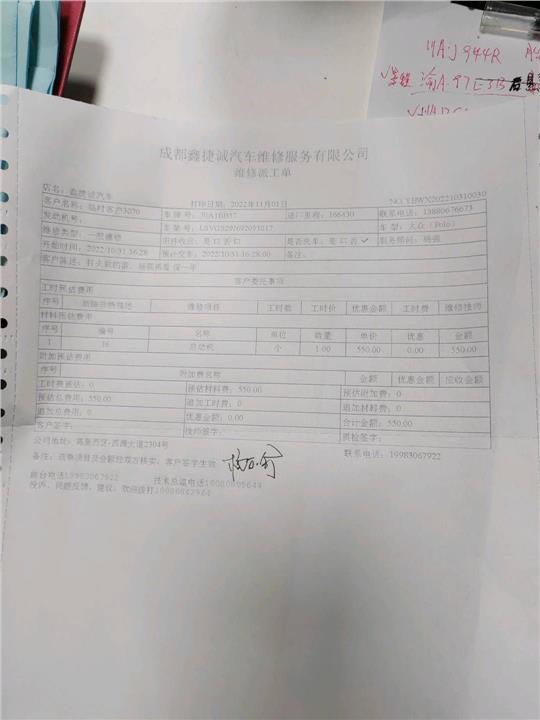 川A·J944R
渝A·97E3B
成都鑫捷诚汽车维修服务有限公司
维修派工单
店名：鑫捷诚汽车 打印日期：2022年11月01日 NO.YBWX202210310030
客户名称：临时客户3070 车牌号：川A1BB57 进厂里程：166430 联系电话：13880676673
发动机号： 车架号：LSVGS2976F2093017 车型：大众（Polo）
维修类型：一般维修 旧件收回：是口否口 是否洗车：是口否✓ 服务顾问：杨强
开始时间：2022/10/31 16:28 预计交车：2022/10/31 16:28:00 备注：
客户陈述：打火款的霸，杨琪再看 保一年
客户委托事项
工时预估费用
序号 维修项目 工时数 工时价 优惠金额 工时费 维修技师
材料预估费用
序号 编号 名称 单位 数量 单价 优惠 金额
1 16 启动机 个 1.00 550.00 0.00 550.00
附加预估费用
序号 附加费名称 金额 优惠金额 应收金额
工时费预估：0 预估材料费：550.00 预估附加费：0
预估总费用：550.00 追加工时费：0 追加材料费：0
追加总费用：0 优惠金额：0.00 合计金额：550.00
客户签字： 技师签字： 质检签字：
公司地址：高新西区-西源大道2304号 联系电话：19983067922
备注：选修项目及金额经双方核实，客户签字生效
前台电话19983067922 技术总监电话18080895644
投诉、问题反馈、建议：欢迎拨打18080842964